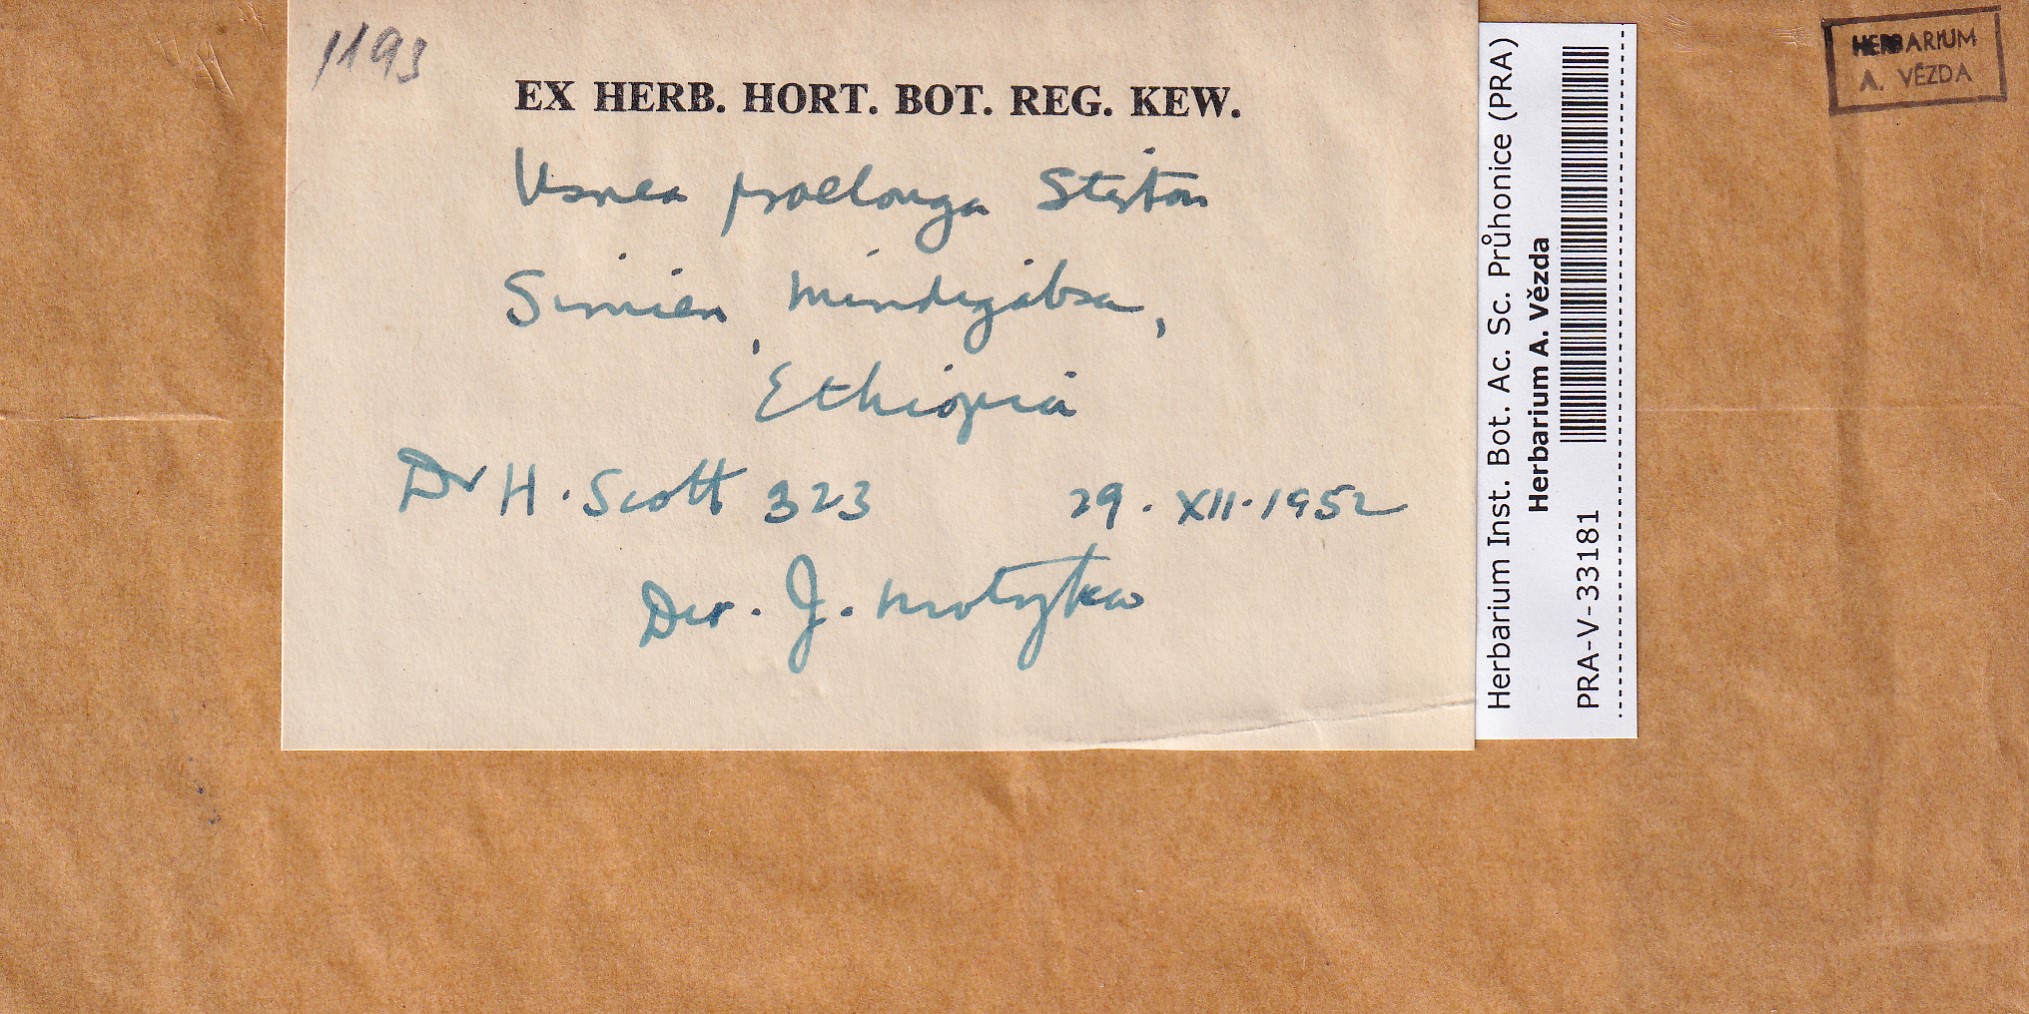 1193
EX HERB. HORT. BOT. REG. KEW.
Usnea praelonga Stirton
Simien, Mindigabsa,
Ethiopia
Dr H. Scott 323 29. XII. 1952
Det. J. Motyka
Herbarium Inst. Bot. Ac. Sc. Průhonice (PRA)
Herbarium A. Vězda
PRA-V-33181
HERBARIUM
A. VĚZDA